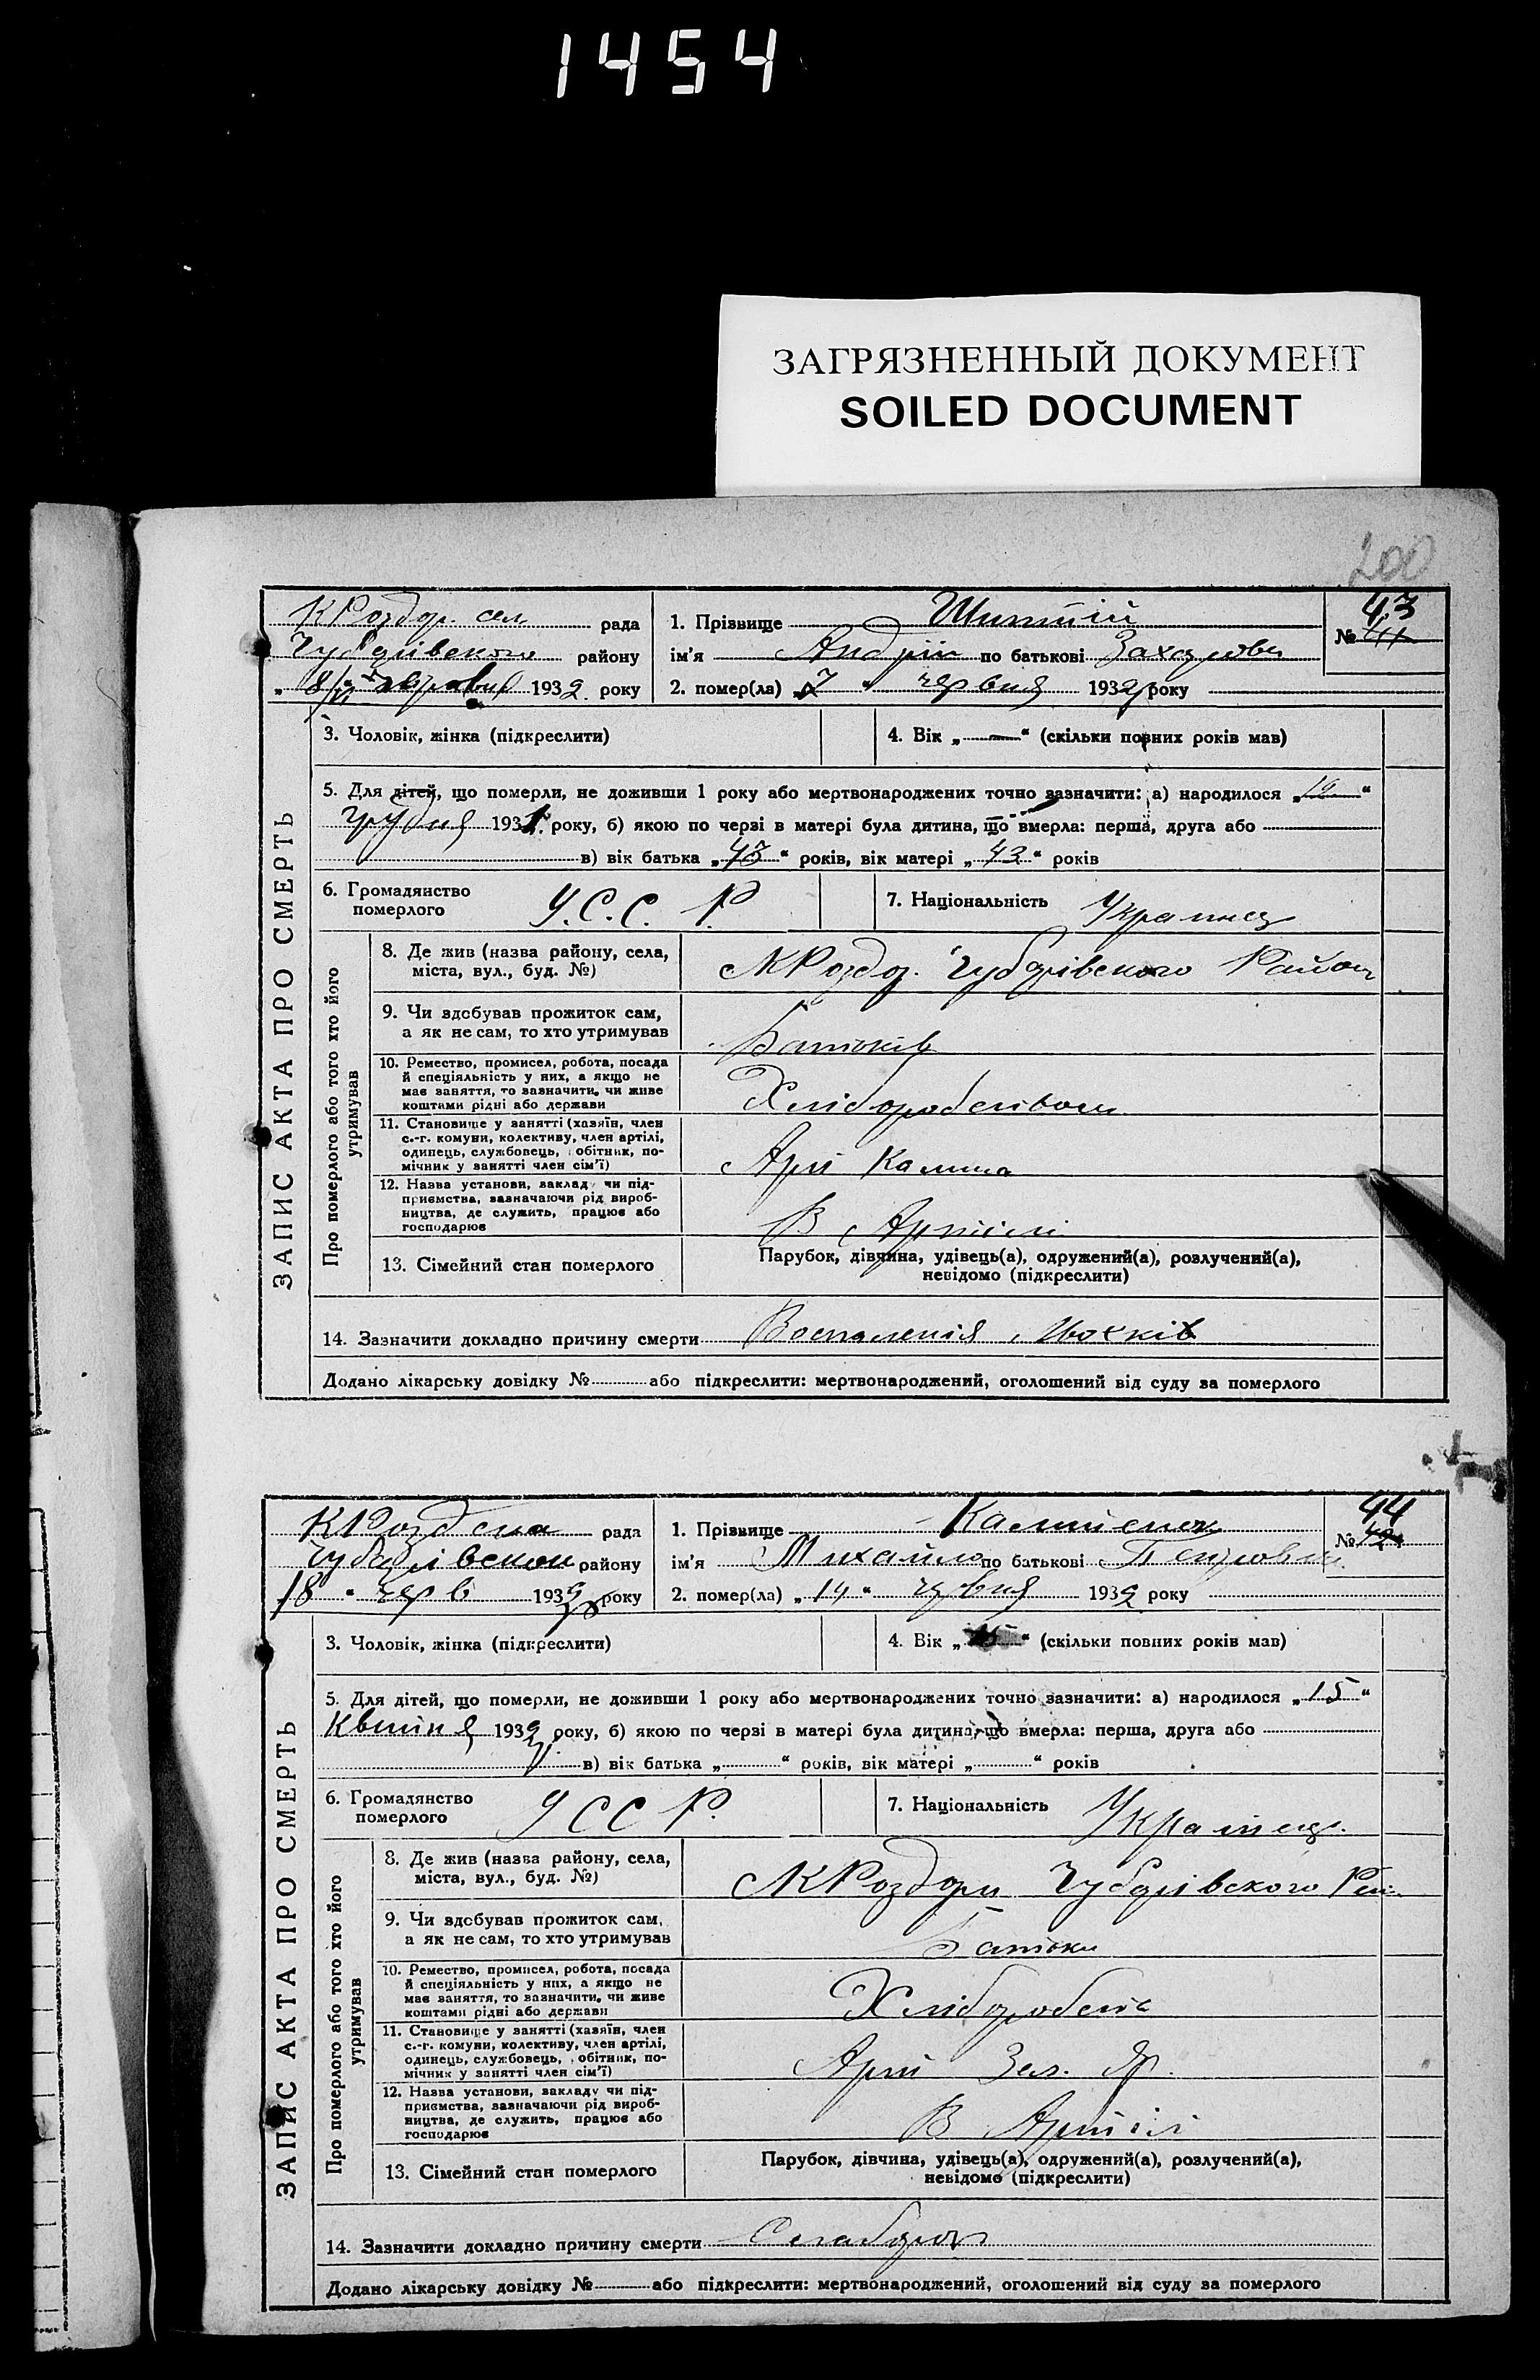 1454
ЗАГРЯЗНЕННЫЙ ДОКУМЕНТ
SOILED DOCUMENT
200
ЗАПИС АКТА ПРО СМЕРТЬ
К Роздор. сел. рада
Чубарівского району
„ 8 1932 року
1. Прізвище
43
№ 41
ім'я Андрій по батькові Захарович
2. помер(ла) „7“ червня 1932 року
3. Чоловік, жінка (підкреслити)
4. Вік „—“ (скільки повних років мав)
5. Для дітей, що померли, не доживши 1 року або мертвонароджених точно зазначити: а) народилося „19“
Грудня 1931 року, б) якою по черзі в матері була дитина, що вмерла: перша, друга або
в) вік батька „43“ років, вік матері „43“ років
6. Громадянство
померлого
У.С.С.Р.
7. Національність Украинец
Про померлого або того хто його
утримував
8. Де жив (назва району, села,
міста, вул., буд. №)
МРоздор. Чубарівского Район
9. Чи здобував прожиток сам,
а як не сам, то хто утримував
Батьків
10. Ремество, промисел, робота, посада
й спеціяльність у них, а якщо не
має заняття, то зазначити, чи живе
коштами рідні або держави
Хлібороб
11. Становище у занятті (хазяїн, член
с.-г. комуни, колективу, член артілі,
одинець, службовець, робітник, по-
мічник у занятті член сім'ї)
Арт
12. Назва установи, закладу чи під-
приємства, зазначаючи рід вироб-
ництва, де служить, працює або
господарює
В Артілі
13. Сімейний стан померлого
Парубок, дівчина, удівець(а), одружений(а), розлучений(а),
невідомо (підкреслити)
14. Зазначити докладно причину смерти Воспаленія
Додано лікарську довідку № або підкреслити: мертвонароджений, оголошений від суду за померлого
ЗАПИС АКТА ПРО СМЕРТЬ
К Розд сел рада
Чубарівском району
18 „ черв 1932 року
1. Прізвище
44
№ 42
ім'я Михайло по батькові Петрович
2. помер(ла) „14“ червня 1932 року
3. Чоловік, жінка (підкреслити)
4. Вік „ “ (скільки повних років мав)
5. Для дітей, що померли, не доживши 1 року або мертвонароджених точно зазначити: а) народилося „15“
Квітня 1932 року, б) якою по черзі в матері була дитина, що вмерла: перша, друга або
в) вік батька „ “ років, вік матері „ “ років
6. Громадянство
померлого
УССР.
7. Національність Українец.
Про померлого або того хто його
утримував
8. Де жив (назва району, села,
міста, вул., буд. №)
МРоздори Чубарівского Рай
9. Чи здобував прожиток сам,
а як не сам, то хто утримував
Батьки
10. Ремество, промисел, робота, посада
й спеціяльність у них, а якщо не
має заняття, то зазначити, чи живе
коштами рідні або держави
Хлібороб
11. Становище у занятті (хазяїн, член
с.-г. комуни, колективу, член артілі,
одинець, службовець, робітник, по-
мічник у занятті член сім'ї)
Арт Зел. Яр.
12. Назва установи, закладу чи під-
приємства, зазначаючи рід вироб-
ництва, де служить, працює або
господарює
В Артілі
13. Сімейний стан померлого
Парубок, дівчина, удівець(а), одружений(а), розлучений(а),
невідомо (підкреслити)
14. Зазначити докладно причину смерти
Додано лікарську довідку № або підкреслити: мертвонароджений, оголошений від суду за померлого